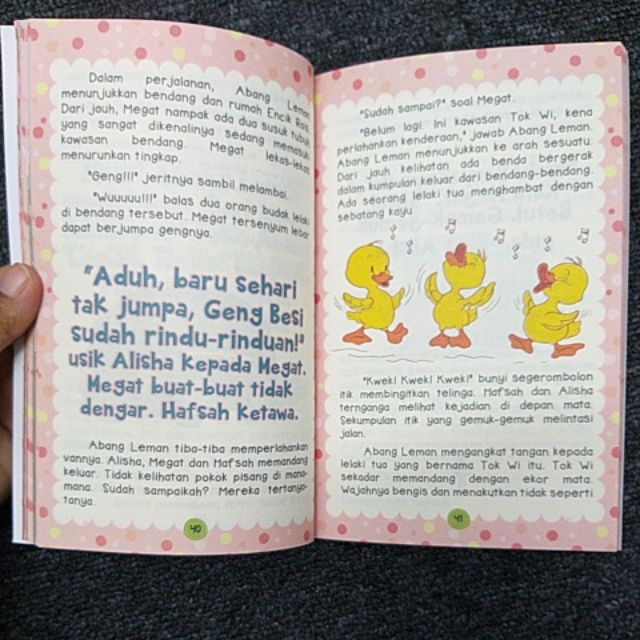 Dalam perjalanan, Abang Leman
menunjukkan bendang dan rumah Encik Rais.
Dari jauh, Megat nampak ada dua susuk tubuh
yang sangat dikenalinya sedang memasuki
kawasan bendang. Megat lekas-lekas
menurunkan tingkap.
"Geng!!!" jeritnya sambil melambai.
"Wuuuuu!!!" balas dua orang budak lelaki
di bendang tersebut. Megat tersenyum lebar
dapat berjumpa gengnya.
"Aduh, baru sehari
tak jumpa, Geng Besi
sudah rindu-rinduan!"
usik Alisha kepada Megat.
Megat buat-buat tidak
dengar. Hafsah Ketawa.
Abang Leman tiba-tiba memperlahankan
vannya. Alisha, Megat dan Hafsah memandang
keluar. Tidak kelihatan pokok pisang di mana-
mana. Sudah sampaikah? Mereka tertanya-
tanya.
40
"Sudah sampai?" soal Megat.
"Belum lagi. Ini kawasan Tok Wi, kena
perlahankan kenderaan," jawab Abang Leman.
Abang Leman menunjukkan ke arah sesuatu.
Dari jauh kelihatan ada benda bergerak
dalam kumpulan keluar dari bendang-bendang.
Ada seorang lelaki tua menghambat dengan
sebatang kayu.
"Kwek! Kwek! Kwek!" bunyi segerombolan
itik membingitkan telinga. Hafsah dan Alisha
ternganga melihat kejadian di depan mata.
Sekumpulan itik yang gemuk-gemuk melintasi
jalan.
Abang Leman mengangkat tangan kepada
lelaki tua yang bernama Tok Wi itu. Tok Wi
sekadar memandang dengan ekor mata.
Wajahnya bengis dan menakutkan tidak seperti
41